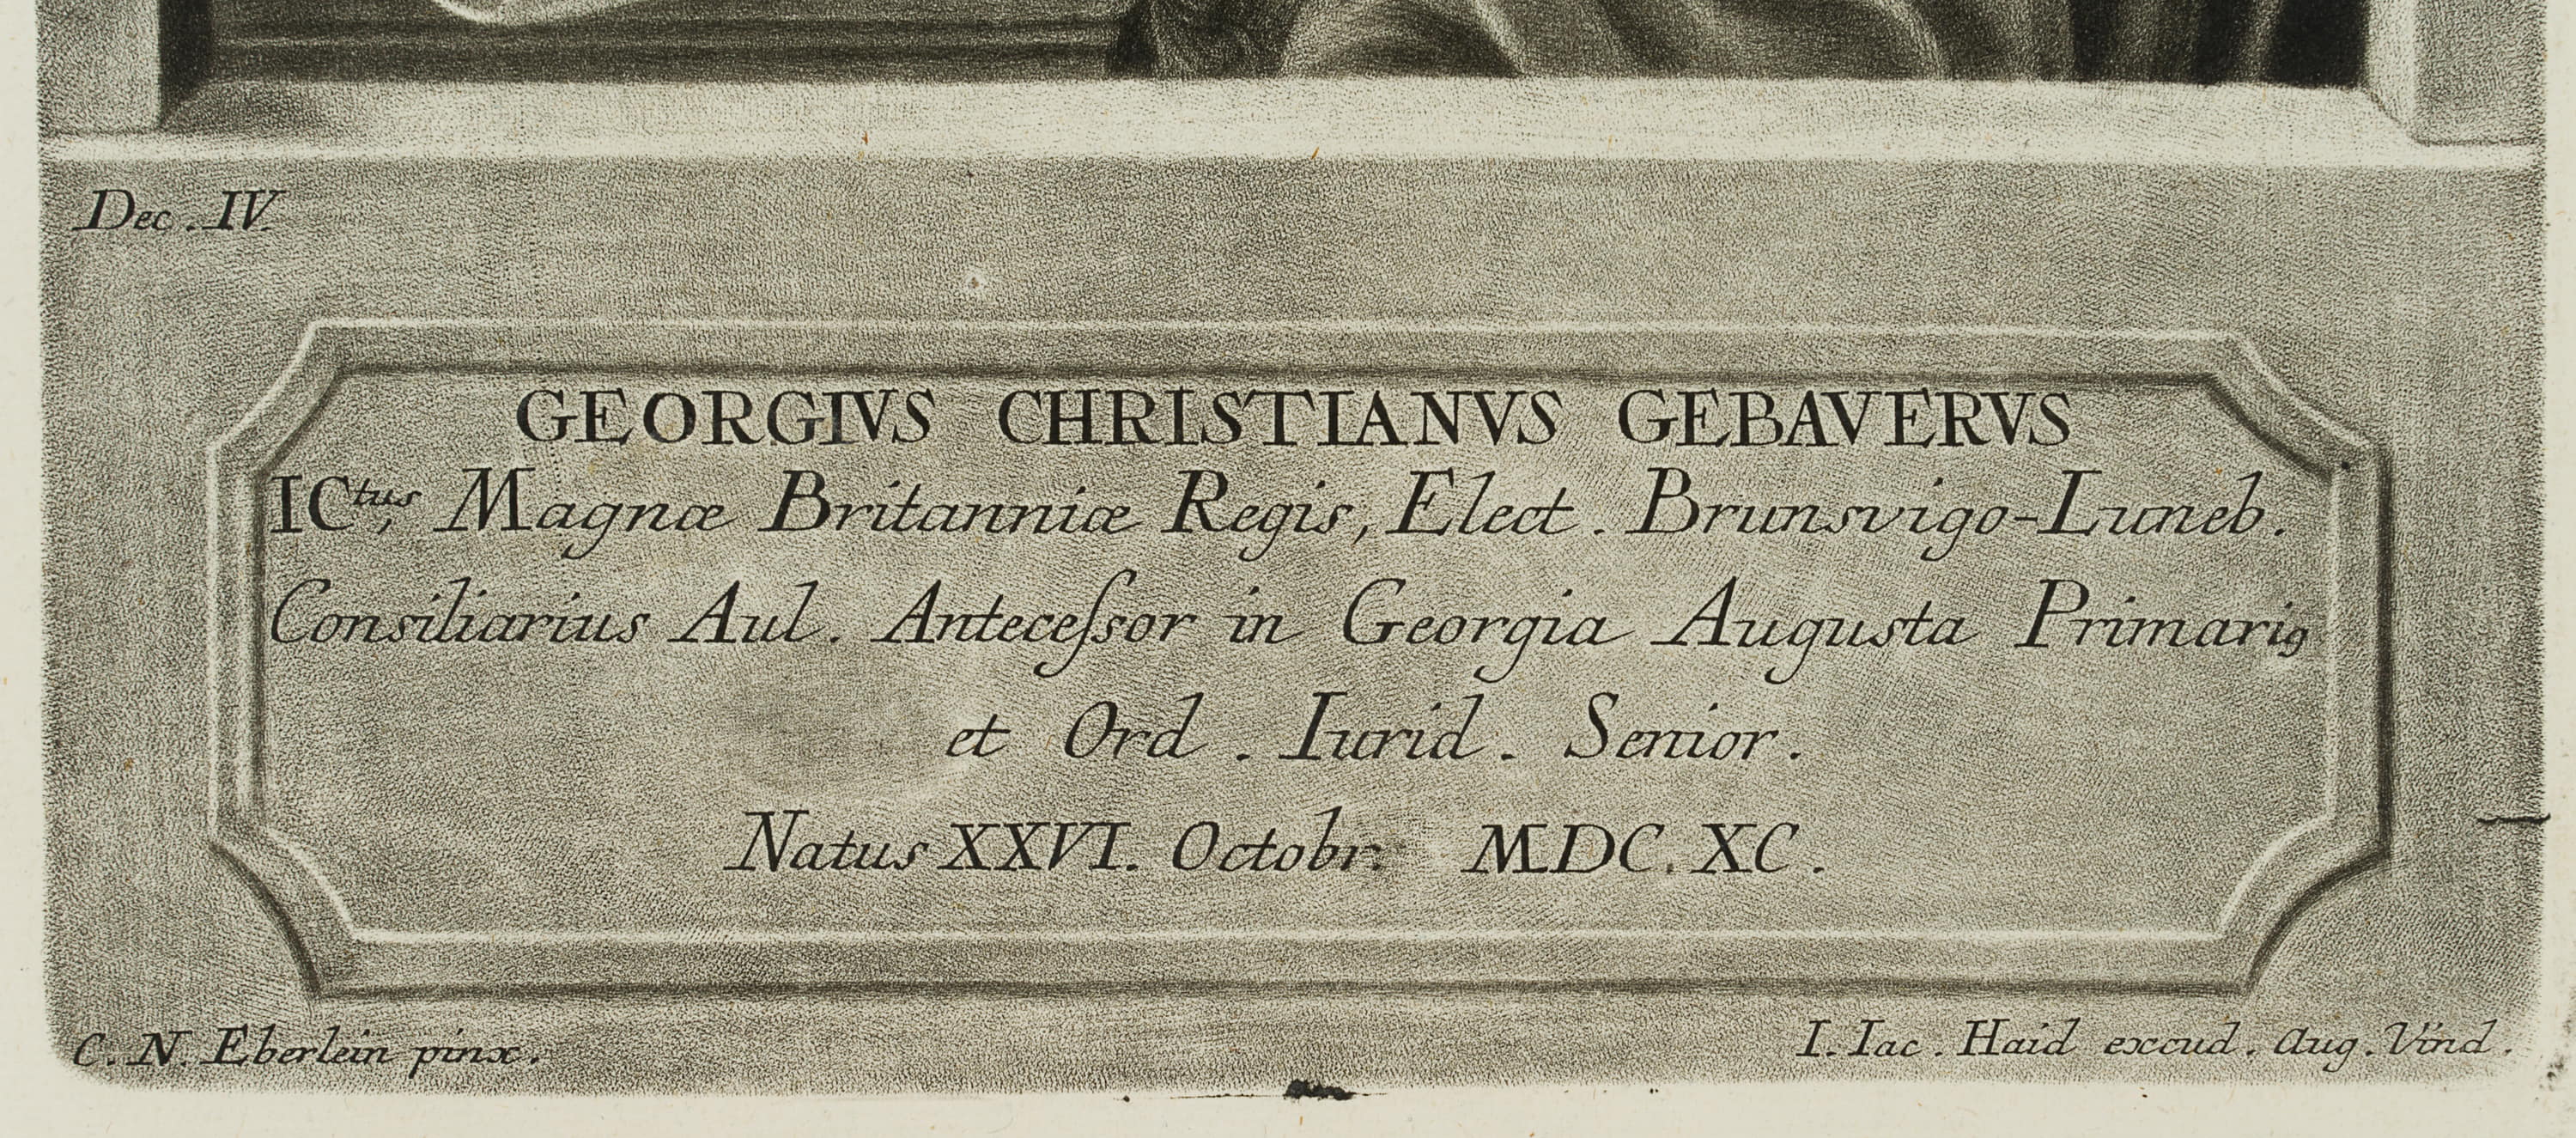 Dec. IV.
GEORGIVS CHRISTIANVS GEBAVERVS
ICtus, Magnæ Britanniæ Regis, Elect. Brunsvigo-Luneb.
Consiliarius Aul. Anteceſsor in Georgia Augusta Primariꝯ
et Ord. Iurid. Senior.
Natus XXVI. Octobr. MDC.XC.
C. N. Eberlein pinx.
I. Iac. Haid excud. Aug. Vind.